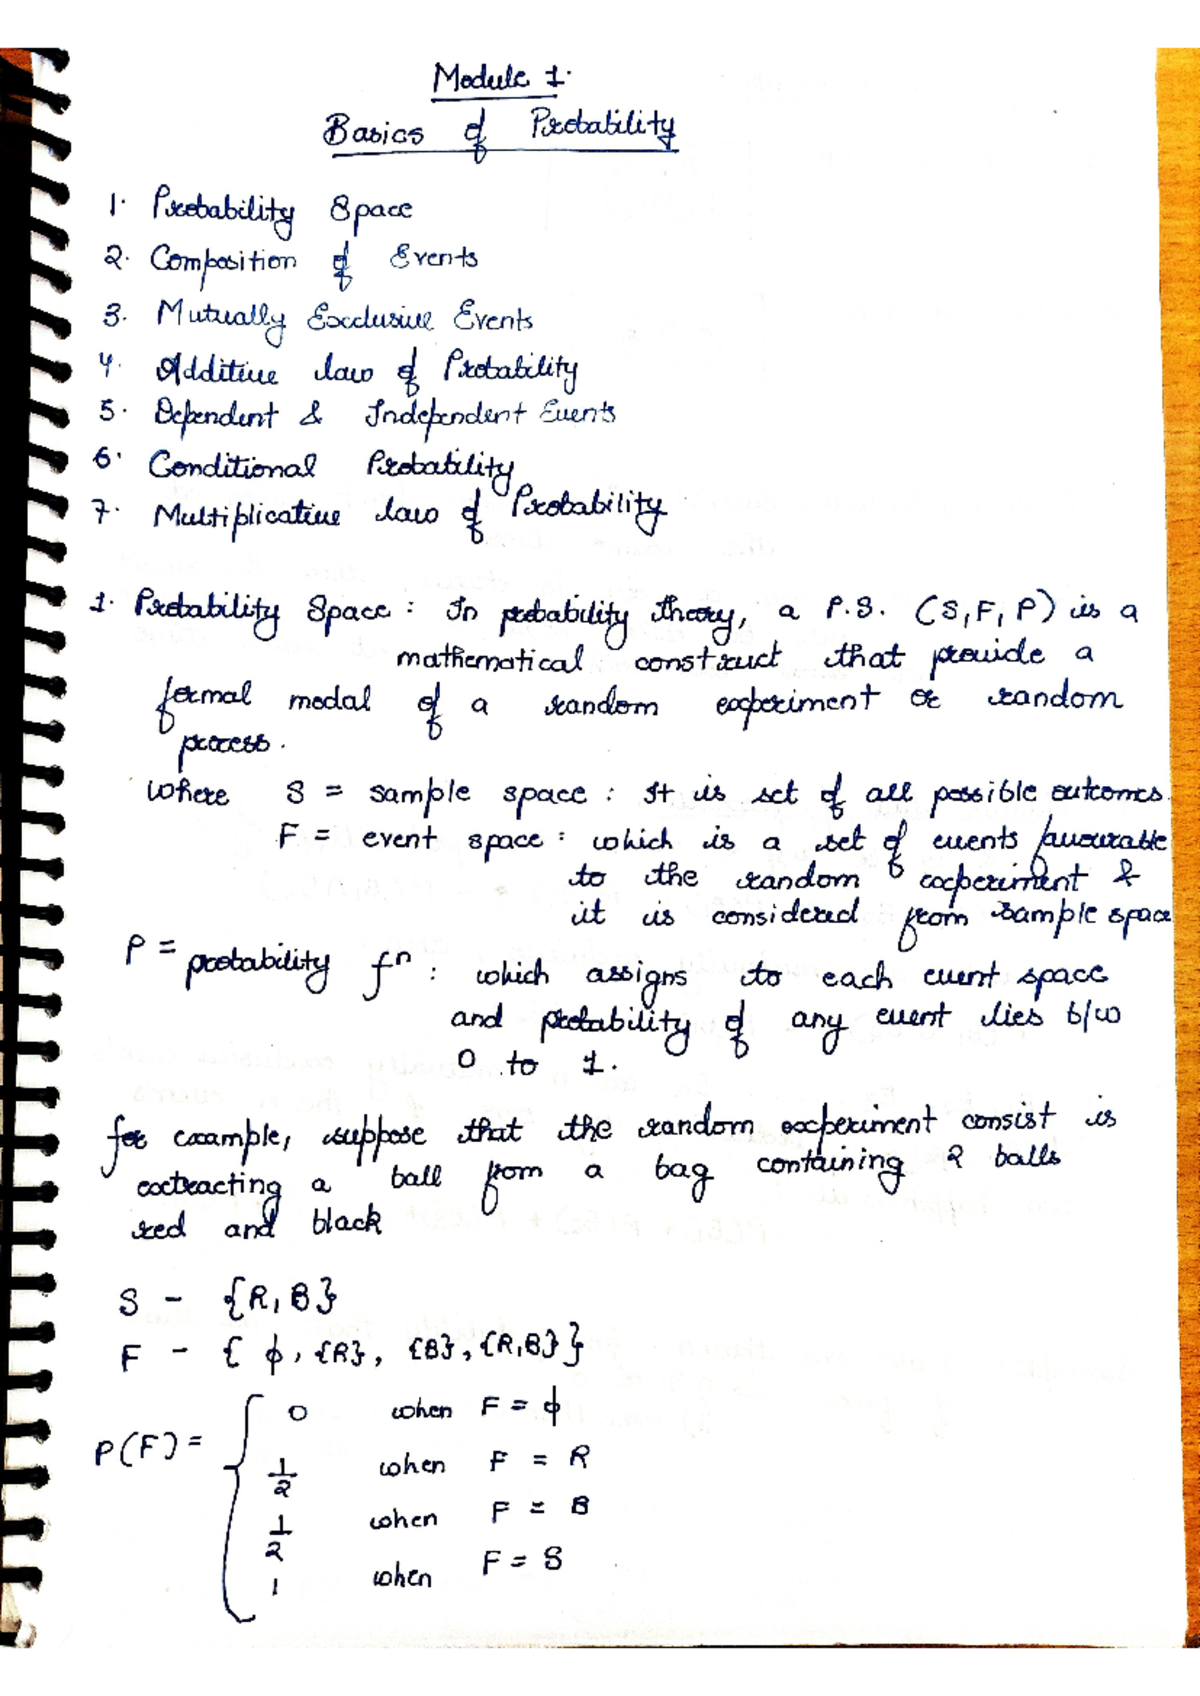 Module 1.
Basics of Probability
1. Probability Space
2. Composition of Events
3. Mutually Exclusive Events
4. Additive law of Probability
5. Dependent & Independent Events
6. Conditional Probability
7. Multiplicative law of Probability
1. Probability Space : In probability theory, a P.S. (S, F, P) is a
mathematical construct that provide a
formal modal of a random experiment or random
process.
where S = sample space : It is set of all possible outcomes.
F = event space : which is a set of events favourable
to the random experiment &
it is considered from sample space
P = probability fⁿ : which assigns to each event space
and probability of any event lies b/w
0 to 1.
for example, suppose that the random experiment consist is
extracting a ball from a bag containing 2 balls
red and black
S - {R, B}
F - { ϕ, {R}, {B}, {R,B} }
P(F) = { 0 when F = ϕ
1/2 when F = R
1/2 when F = B
1 when F = S